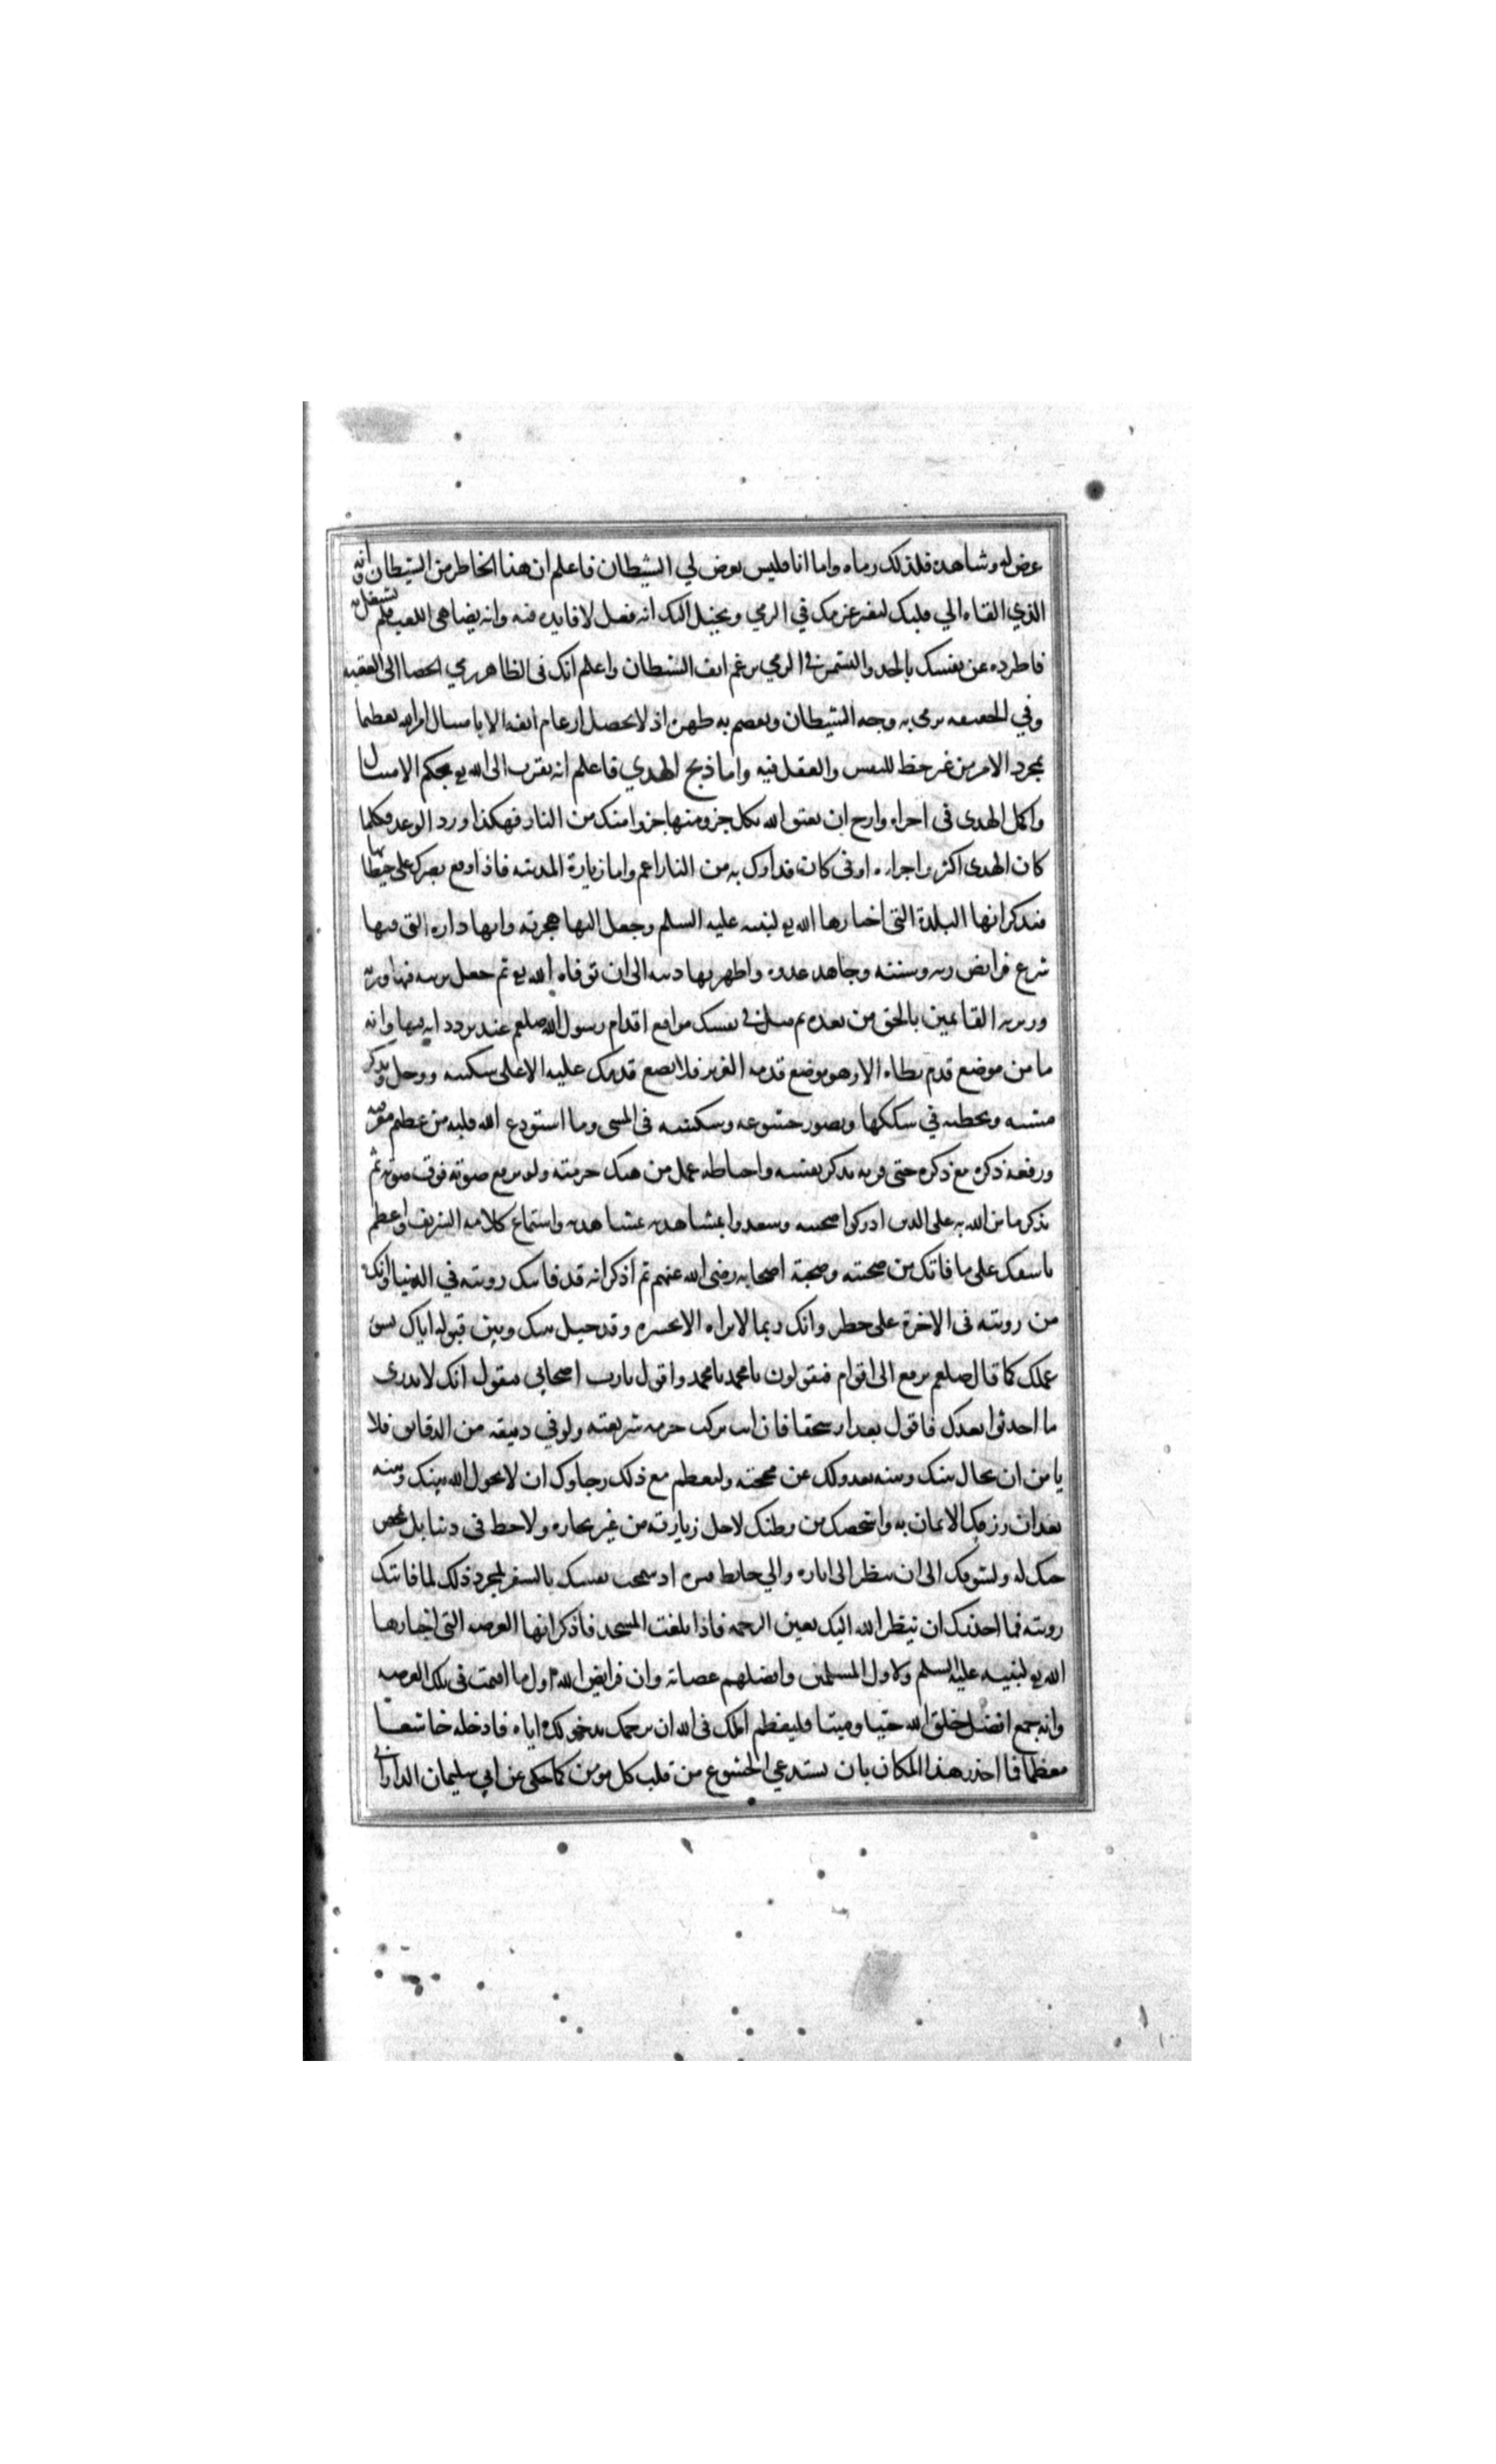 عرض له وشاهده فلذلك رماه واما انا فليس يعرض لي الشيطان فاعلم ان هذا الخاطر من الشيطان وانه
الذي القاه الي قلبك ليفتر عزمك في الرمي ويخيل اليك انه فعل لا فايده فيه وانه يضاهي اللعب فلم تشتغل به
فاطرده عن نفسك بالجد والتشمير في الرمي برغم انف الشيطان واعلم انك في الظاهر رمي الحصا الى العقبه
وفي الحقيقه ترمي به وجه الشيطان وتقصم به ظهره اذ لا يحصل ارغام انفه الا بامتثال امر الله تعظيما
بمجرد الامر من غير حظ للنفس والعقل فيه واما ذبح الهدي فاعلم انه تقرب الى الله تع بحكم الامتثال
واكمل الهدى في اجزاه وارج ان يعتق الله بكل جزو منها جزوا منك من النار فهكذا ورد الوعد فكلما
كان الهدى اكثر واجزاءه اوفى كان فداوك به من النار اعم واما زيارة المدينه فاذا وقع بصرك على حيطانها
فتذكر انها البلدة التي اختارها الله تع لنبيه عليه السلم وجعل اليها هجرته وانها داره التي فيها
شرع فرايض ربه وسننه وجاهد عدوه واظهر بها دينه الى ان توفاه الله تع ثم جعل تربته فيها وتربة
وزيريه القايمين بالحق من بعده ثم مثل في نفسك مواقع اقدام رسول الله صلعم عند تردداته فيها وانه
ما من موضع قدم تطاه الا وهو موضع قدمه العزيز فلا تضع قدمك عليه الا على سكينه ووجل وتذكر
مشيه وتخطيه في سككها وتصور خشوعه وسكينته في المشي وما استودع الله قلبه من عظيم معرفته
ورفعه ذكره مع ذكره حتى قرنه بذكر نفسه واحباطه عمل من هتك حرمته ولو برفع صوته فوق صوته ثم
تذكر ما من الله به على الذين ادركوا صحبته وسعدوا بمشاهدته واستماع كلامه الشريف واعظم
تاسفك على ما فاتك من صحبته وصحبة اصحابه رضي الله عنهم ثم اذكر انه قد فاتتك رويته في الدنيا وانك
من رويته في الاخرة على خطر وانك ربما لا تراه الا بحسره وقد حيل بينك وبين قبوله اياك بسو
عملك كما قال صلعم يرفع الى اقوام فيقولون يا محمد يا محمد واقول يارب اصحابي فيقول انك لا تدري
ما احدثوا بعدك فاقول بعدا وسحقا فان انت تركت حرمه شريعته ولو في دقيقه من الدقايق فلا
يامن ان يحال بينك وبينه بعدولك عن محجته وليعظم مع ذلك رجاوك ان لا يحول الله بينك وبينه
بعد ان رزقك الايمان به واشخصك من وطنك لاجل زيارته من غير تجاره ولا حظ في دنيا بل لمحض
حبك له ولتشوقك الى ان تنظر الى اثاره والي حايط قبره اذ سمحت نفسك بالسفر لمجرد ذلك لما فاتتك
رويته فما احذرك ان ينظر الله اليك بعين الرحمه فاذا بلغت المسجد فاذكر انها العرصه التي اختارها
الله تع لنبيه عليه السلم ولاول المسلمين وافضلهم عصابة وان فرايض الله اول ما اقيمت في تلك العرصه
وانه جمع افضل خلق الله حيا وميتا فليعظم املك في الله ان يرحمك بدخولك اياه فادخله خاشعا
معظما فما احذر هذا المكان بان يستدعي الخشوع من قلب كل مومن كما حكى عن ابي سليمان الداراني